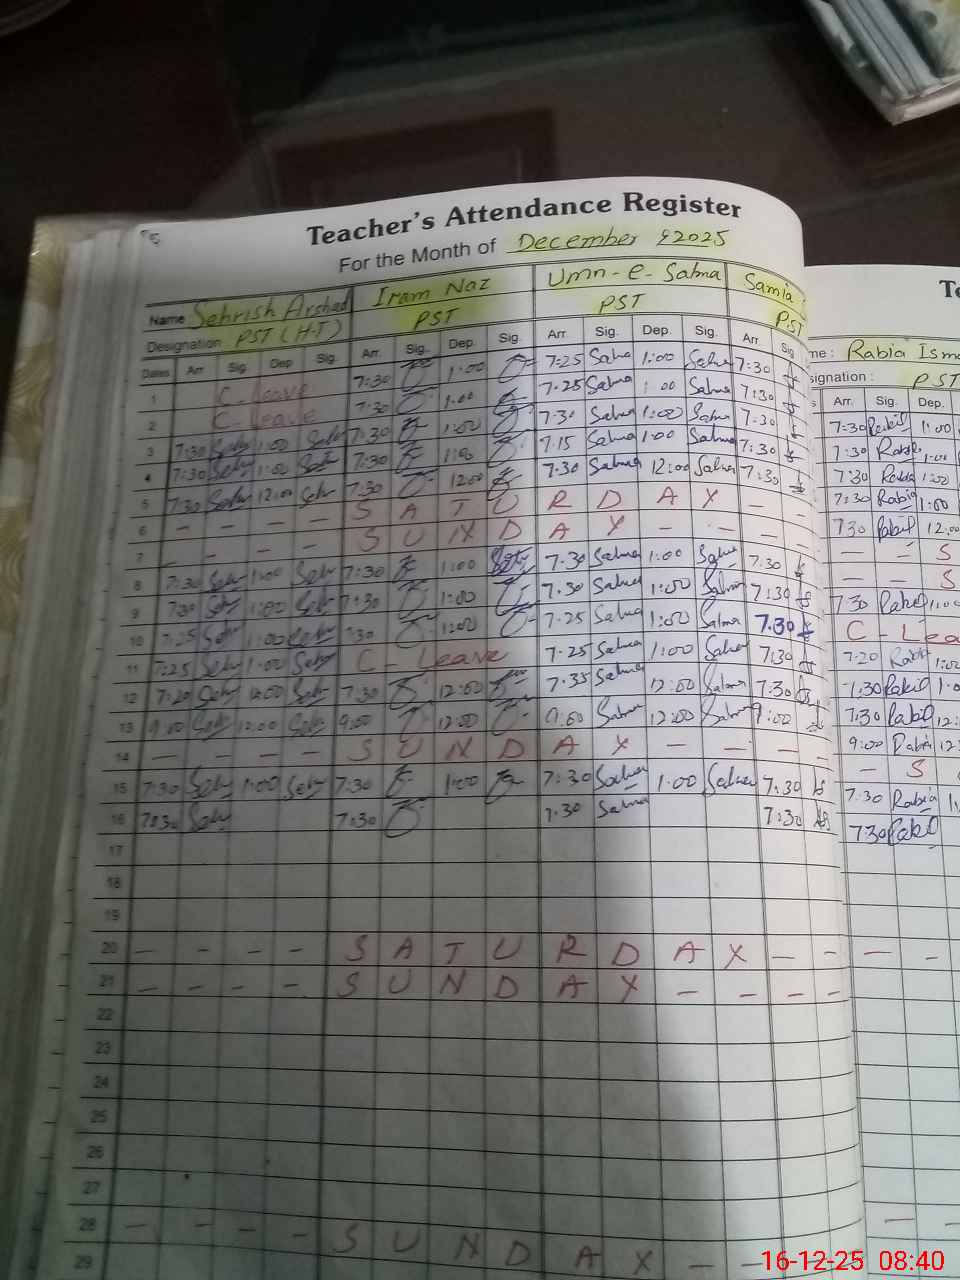 Teacher's Attendance Register
For the Month of December 2025
Name Sehrish Arshad Iram Naz Umn-e-Salma Samia
Designation PST (H.T) PST PST PST
Dates Arr Sig. Dep Sig. Arr. Sig. Dep. Sig. Arr. Sig. Dep. Sig. Arr. Sig
1 C-leave 7:30 1:00 7:25 Salma 1:00 Salma 7:30
2 C-leave 7:30 1:00 7:25 Salma 1:00 Salma 7:30
3 7:30 Sehr 1:00 Sehr 7:30 1:00 7:30 Salma 1:00 Salma 7:30
4 7:30 Sehr 1:00 Sehr 7:30 1:00 7:15 Salma 1:00 Salma 7:30
5 7:30 Sehr 12:00 Sehr 7:30 12:00 7:30 Salma 12:00 Salma 7:30
6 - - - - S A T U R D A Y - -
7 - - - - S U N D A Y - - - -
8 7:30 Sehr 1:00 Sehr 7:30 1:00 7:30 Salma 1:00 Salma 7:30
9 7:30 Sehr 1:00 Sehr 7:30 1:00 7:30 Salma 1:00 Salma 7:30
10 7:25 Sehr 1:00 Sehr 7:30 1:00 7:25 Salma 1:00 Salma 7:30
11 7:25 Sehr 1:00 Sehr C-Leave 7:25 Salma 1:00 Salma 7:30
12 7:20 Sehr 12:00 Sehr 7:30 12:00 7:35 Salma 12:00 Salma 7:30
13 9:00 Sehr 12:00 Sehr 9:00 12:00 9:00 Salma 12:00 Salma 9:00
14 - - - - S U N D A Y - - -
15 7:30 Sehr 1:00 Sehr 7:30 1:00 7:30 Salma 1:00 Salma 7:30
16 7:30 Sehr 7:30 7:30 Salma 7:30
17
18
19
20 - - - - S A T U R D A Y - -
21 - - - - S U N D A Y - - - -
22
23
24
25
26
27
28 - - - - S U N D A Y - -
29
Rabia
PST
Arr. Sig. Dep.
7:30 Rabia 1:00
7:30 Rabia 1:00
7:30 Rabia 1:00
7:30 Rabia 1:00
7:30 Rabia 12:00
- - S
- - S
7:30 Rabia 1:00
C-Lea
7:20 Rabia 1:00
7:30 Rabia
7:30 Rabia 12
9:00 Rabia 12
- S
7:30 Rabia
7:30 Rabia
- -
- -
-
16-12-25 08:40